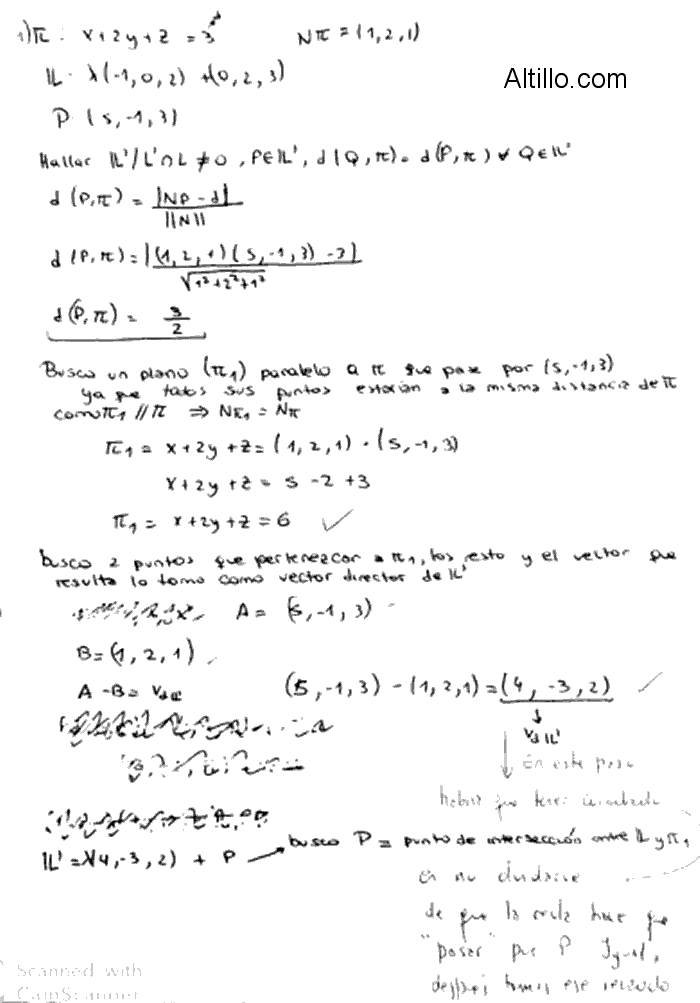 1) π : x+2y+z = 3 Nπ = (1,2,1)
Altillo.com
IL · λ(-1,0,2) + (0,2,3)
P (5,-1,3)
Hallar IL' / L' ∩ L ≠ 0 , P ∈ IL' , d(Q,π) = d(P,π) ∀ Q ∈ IL'
d(P,π) = |NP - d| / ||N||
d(P,π) = |(1,2,1)(5,-1,3) - 3| / √1²+2²+1²
d(P,π) = 3/2
Busco un plano (π₁) paralelo a π que pase por (5,-1,3)
ya que todos sus puntos estarían a la misma distancia de π
como π₁ // π ⇒ Nπ₁ = Nπ
π₁ = x+2y+z = (1,2,1) · (5,-1,3)
x+2y+z = 5 -2 +3
π₁ = x+2y+z = 6 ✓
busco 2 puntos que pertenezcan a π₁, los resto y el vector que
resulta lo tomo como vector director de IL'
A = (5,-1,3)
B = (1,2,1)
A - B = Vd IL' (5,-1,3) - (1,2,1) = (4,-3,2) ✓
Vd IL'
En este paso
habría que tener cuidado
IL' = λ(4,-3,2) + P → busco P = punto de intersección entre IL y π₁
en no olvidarse
de que la recta tiene que
"pasar" por P Igual,
después tomas ese recaudo
Scanned with
CamScanner